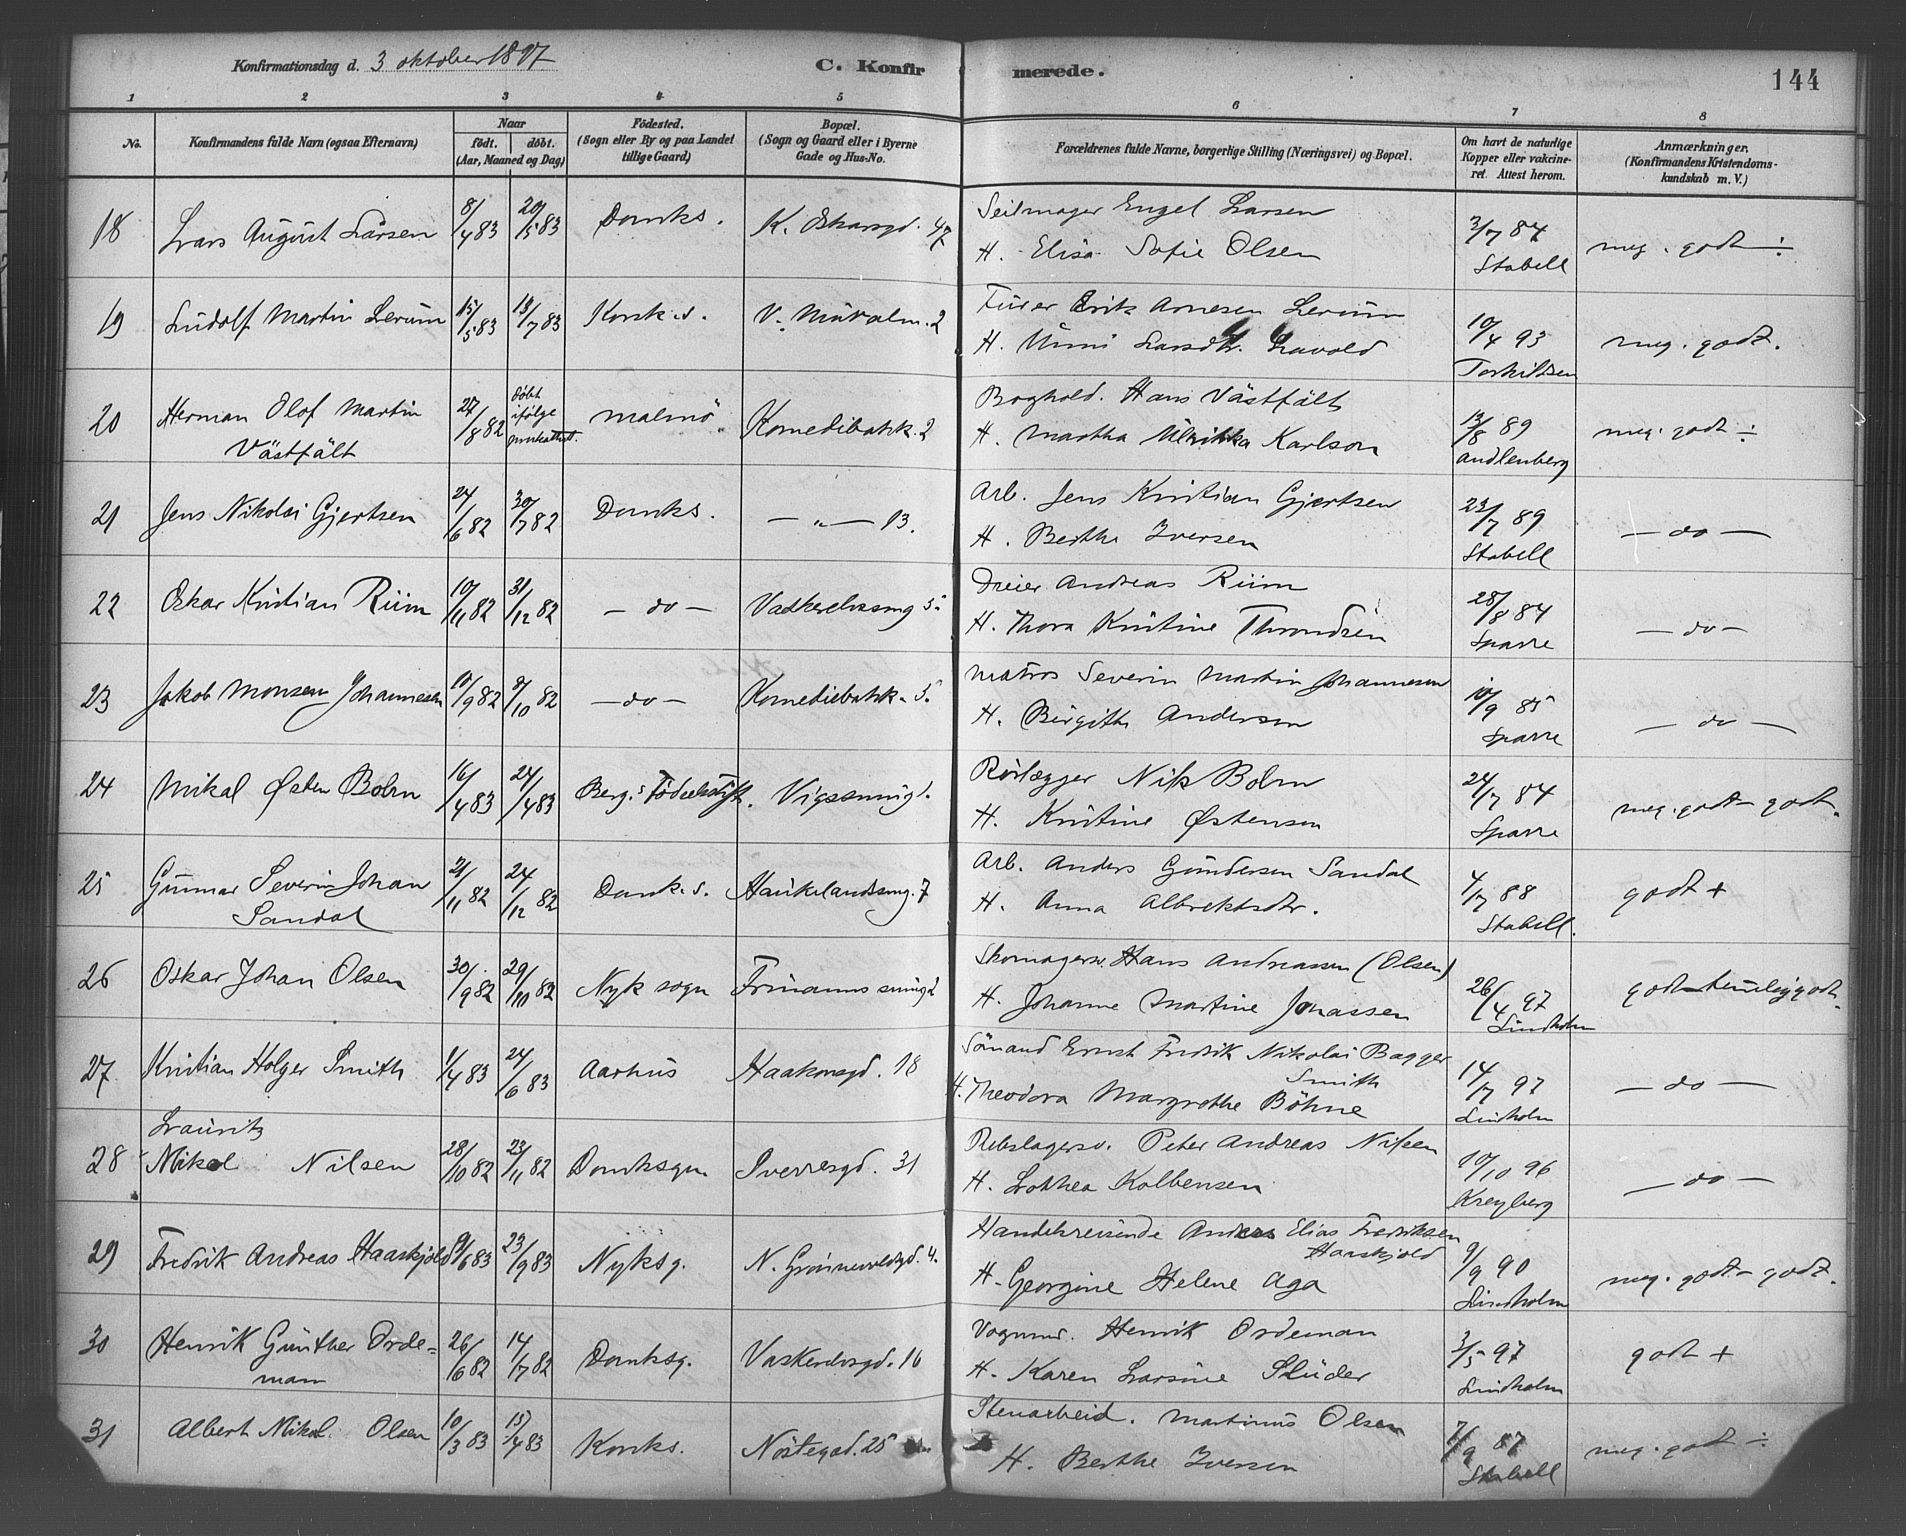 Konfirmationsdag d. 3 oktober 1897
C. Konfirmerede.
144
1 2 3 4 5 6 7 8
No.
Konfirmandens fulde Navn (ogsaa Efternavn)
Naar
født. døbt.
(Aar, Maaned og Dag)
Fødested.
(Sogn eller By og paa Landet
tillige Gaard)
Bopæl.
(Sogn og Gaard eller i Byerne
Gade og Hus-No.
Forældrenes fulde Navne, borgerlige Stilling (Næringsvei) og Bopæl.
Om havt de naturlige
Kopper eller vakcine-
ret. Attest herom.
Anmærkninger.
(Konfirmandens Kristendoms-
kundskab m. V.)
18 Lars August Larsen 8/4 83 20/5 83 Domks. 47 Seilmager Engel Larsen 3/7 84
H. Elisa Sofie Olsen Stabell meg. godt ÷
19 Ludolf Martin Lerum 15/5 83 Korsk.s. V. Muralm. 2 Erik Arnesen Lerum 10/4 93
H. Unni Larsdtr. Torkildsen meg. godt.
20 Herman Olof Martin 27/8 82 døbt ifølge Malmö Komediebakk. 2 Boghold. Hans Västfält 13/8 89
Västfält H. Martha Ulrikka Karlson meg. godt ÷
21 Jens Nikolai Gjertsen 24/6 82 30/7 82 Domks. — „ — 13. Arb. Jens Kristian Gjertsen 23/7 89
H. Berthe Iversen Stabell — do —
22 Oskar Kristian Riim 10/11 82 31/12 82 — do — Vaskerelvsmg 5. Dreier Andreas Riim 28/8 84
H. Thora Kristine Throndsen Sparre — do —
23 Jakob Monsen Johannesen 10/9 82 8/10 82 — do — Komediebakk. 5. Matros Severin Martin Johannesen 10/9 85
H. Birgithe Andersen Sparre — do —
24 Mikal Østen Bolm 16/4 83 24/4 83 Berg.s Fødselsstift. Rørlægger Nik Bolm 24/7 84
H. Kristine Østensen Sparre meg. godt – godt.
25 Gunnar Severin Johan 21/11 82 24/12 82 Domk.s. Haukelandsmg. 7 Arb. Anders Gundersen Sandal 4/7 88
Sandal H. Anna Albrektsdtr. Stabell. godt +
26 Oskar Johan Olsen 30/9 82 29/10 82 Nyk sogn Skomagersv. Hans Andreassen (Olsen) 26/4 97
H. Johanne Martine Jonassen Lindholm godt – temmelig godt.
27 Kristian Holger Smith 1/4 83 24/6 83 Aarhus Haakonsgd. 18 Ernst Fredrik Nikolai Bagger
Smith 14/7 97
H. Theodora Margrethe Böhne Lindholm — do —
28 Lauritz
Mikal Nilsen 28/10 82 23/11 82 Domksgn Sverresgd. 31 Rebslagersv. Peter Andreas Nilsen 10/10 96
H. Lothea Kolbensen Kreyberg — do —
29 Fredrik Andreas Haaskjold 9/6 83 23/9 83 Nyksg. 4. Handelsreisende Anders Elias Fredriksen
Haaskjold 9/9 90
H. Georgine Helene Aga Lindholm meg. godt – godt.
30 Henrik Günther Orde= 26/6 82 14/7 82 Domksg. Vaskerelvsgd. 16 Vognmd. Henrik Ordeman 3/5 97
man H. Karen Larsine Slüder Lindholm godt +
31 Albert Mikal Olsen 10/3 83 15/4 83 Korsks. Nøstegd. 25 Stenarbeid. Martinus Olsen 7/9 87
H. Berthe Iversen Stabell meg. godt ÷